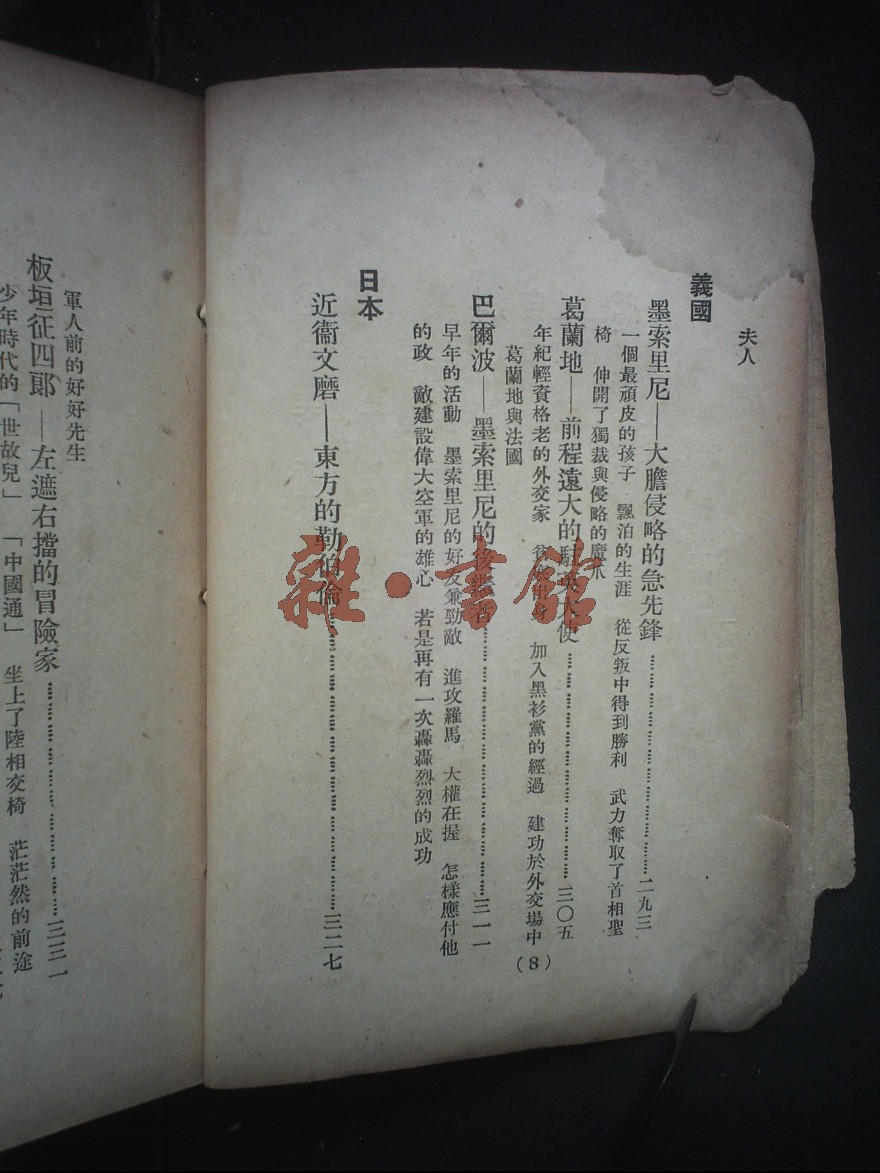 夫人
義國
墨索里尼——大膽侵略的急先鋒……二九三
一個最頑皮的孩子 飄泊的生涯 從反叛中得到勝利 武力奪取了首相聖
椅 伸開了獨裁與侵略的魔爪
葛蘭地——前程遠大的駐英大使……三〇五
年紀輕資格老的外交家 出身 加入黑衫黨的經過 建功於外交場中
葛蘭地與法國
(8)
巴爾波——墨索里尼的後繼者……三一一
早年的活動 墨索里尼的好友兼勁敵 進攻羅馬 大權在握 怎樣應付他
的政 敵建設偉大空軍的雄心 若是再有一次轟轟烈烈的成功
日本
近衞文磨——東方的勒伯倫……三二七
軍人前的好好先生
板垣征四郎——左遮右擋的冒險家……三三一
少年時代的「世故兒」 「中國通」 坐上了陸相交椅 茫茫然的前途
雜·書館